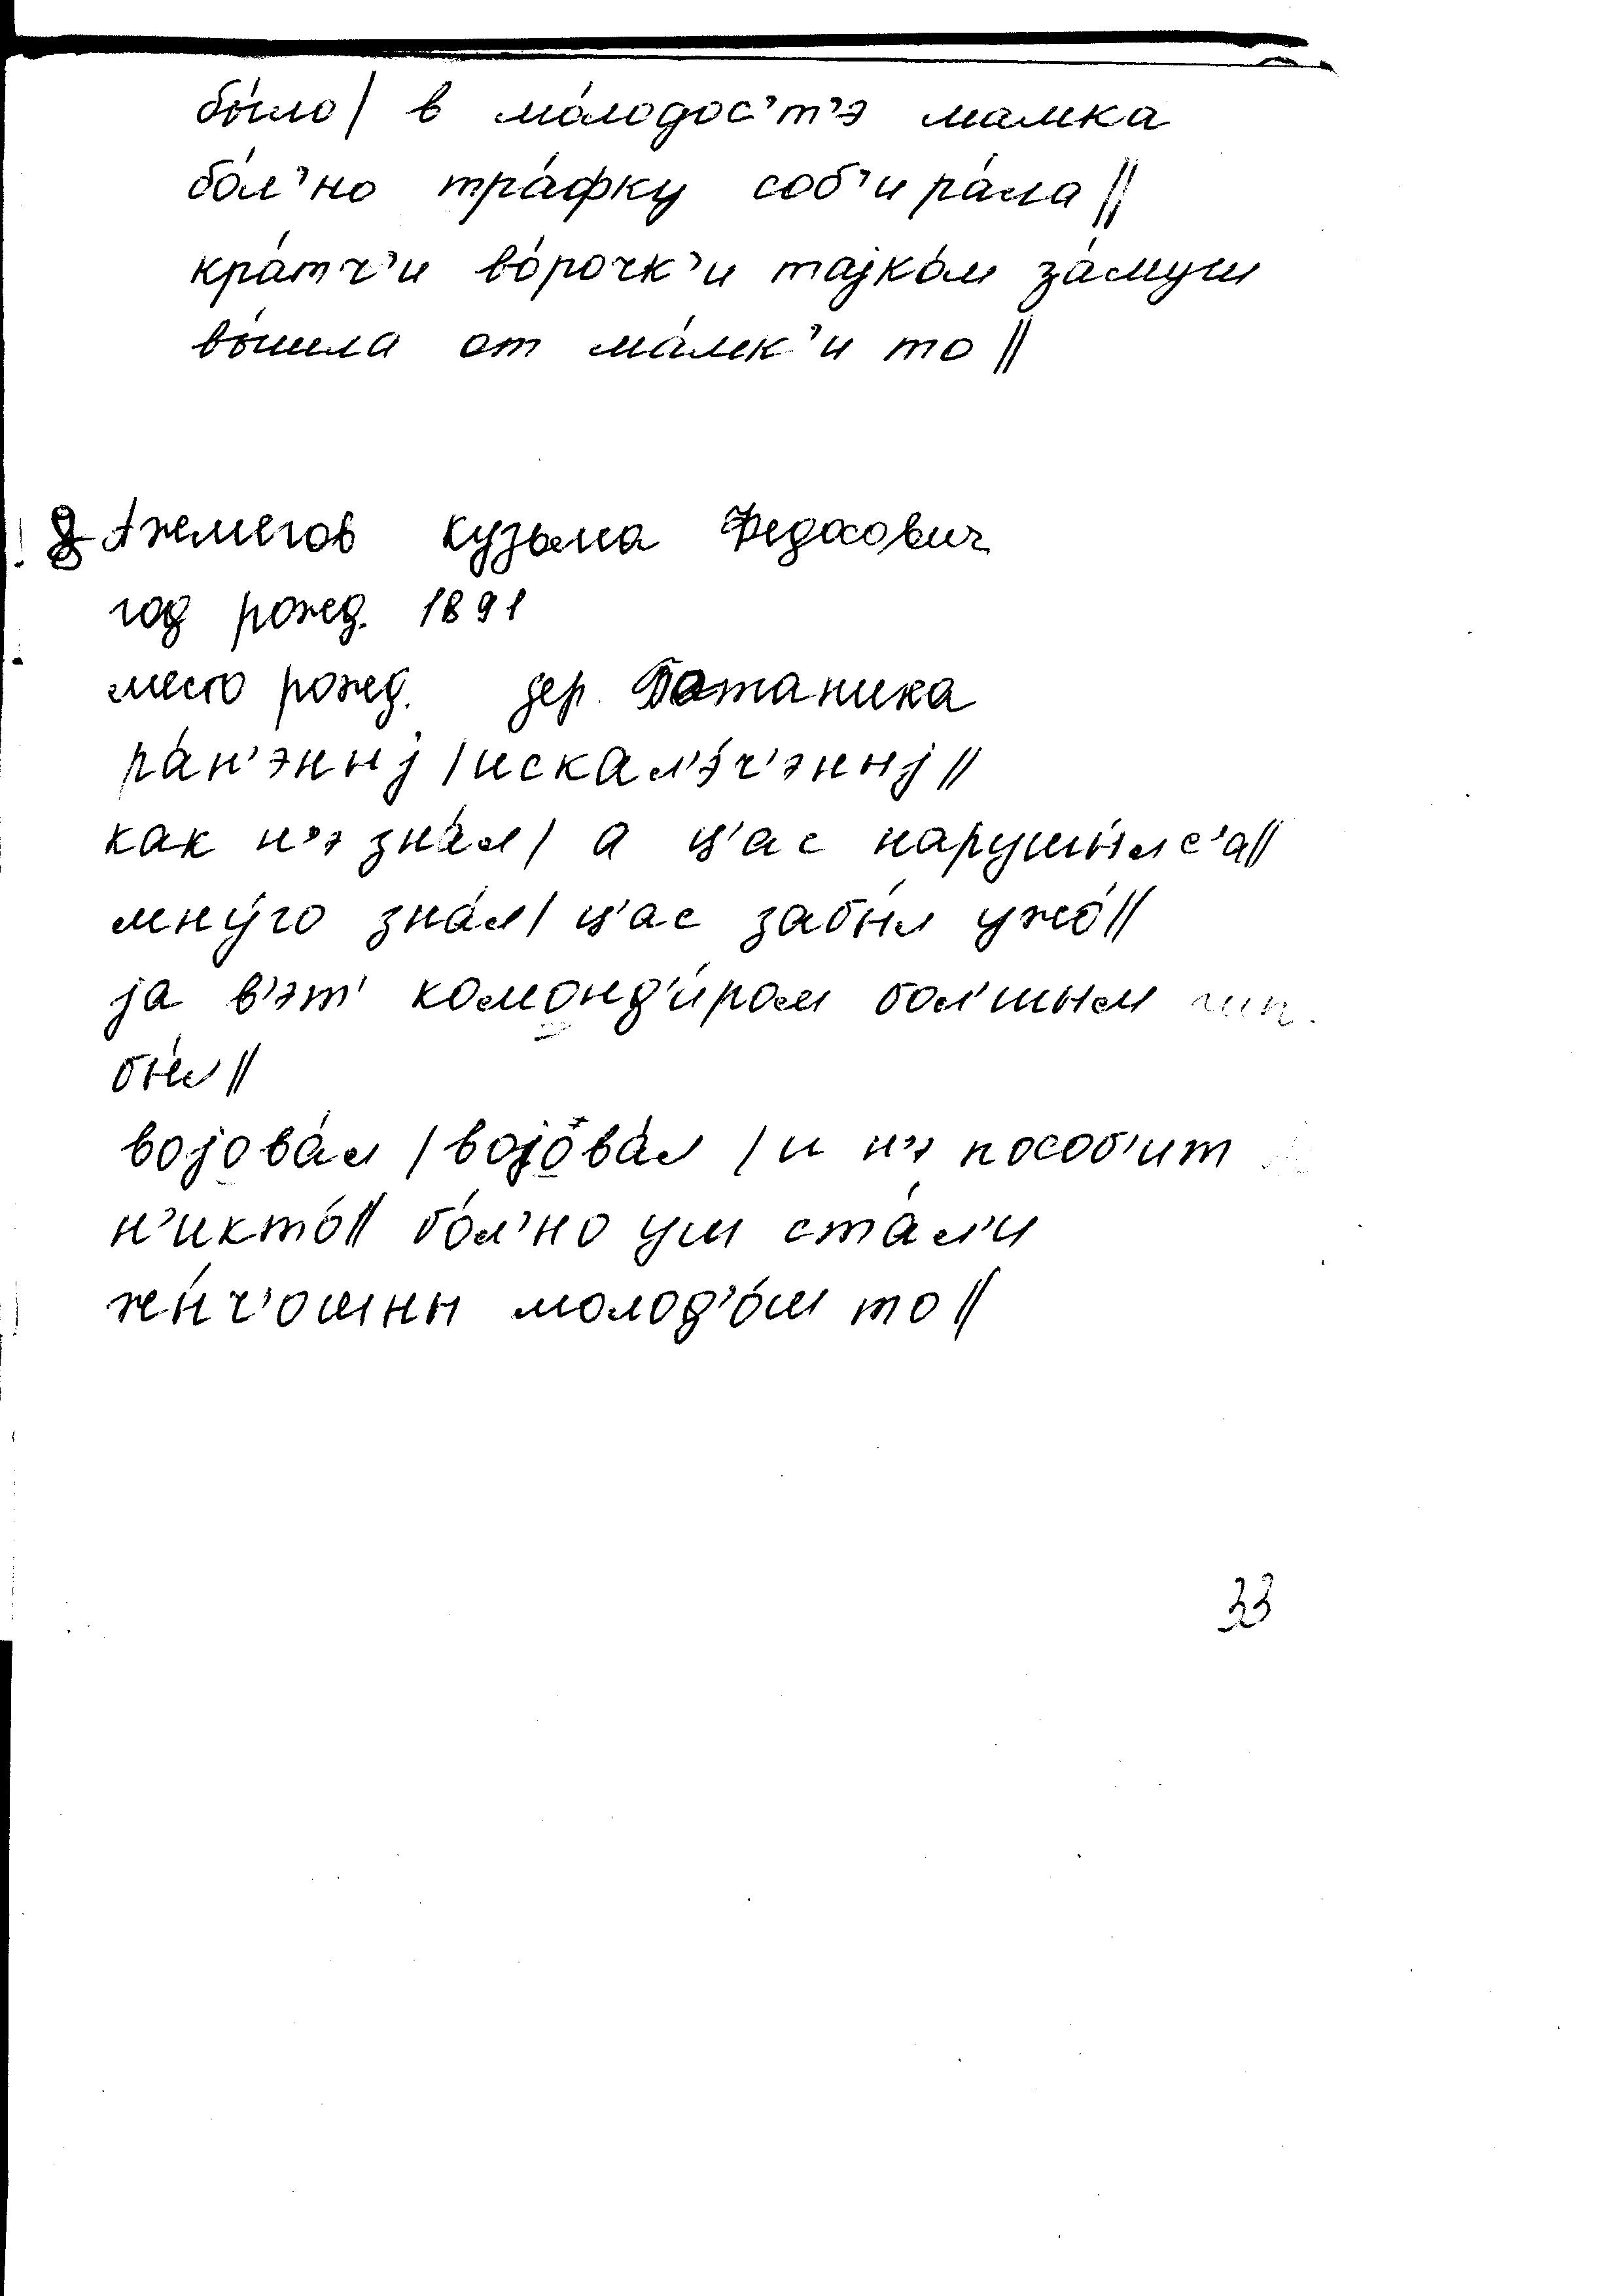 бы́ло/ в мо́лодос’т’э мамка
бо́л’но тра́фку соб’ира́ла//
кра́тч’и во́рочк’и таjко́м за́муш
вы́шла от ма́мк’и то//
Ажмегов Кузьма Федосович
год рожд. 1891
место рожд. дер. Ботаника
ра́н’эннj /искал’э́ч’эннj//
как н’э зна́л/ а ц’ас наруши́лс’а//
мну́го зна́л/ ц’ас забы́л ужо́//
jа в’эт’ комонд’и́ром бол’шым
бы́л//
воjова́л /воjова́л /и н’э пособ’ит
н’икто́// бо́л’но уш ста́л’и
жы́нч’ошны молод’о́ш то//
33